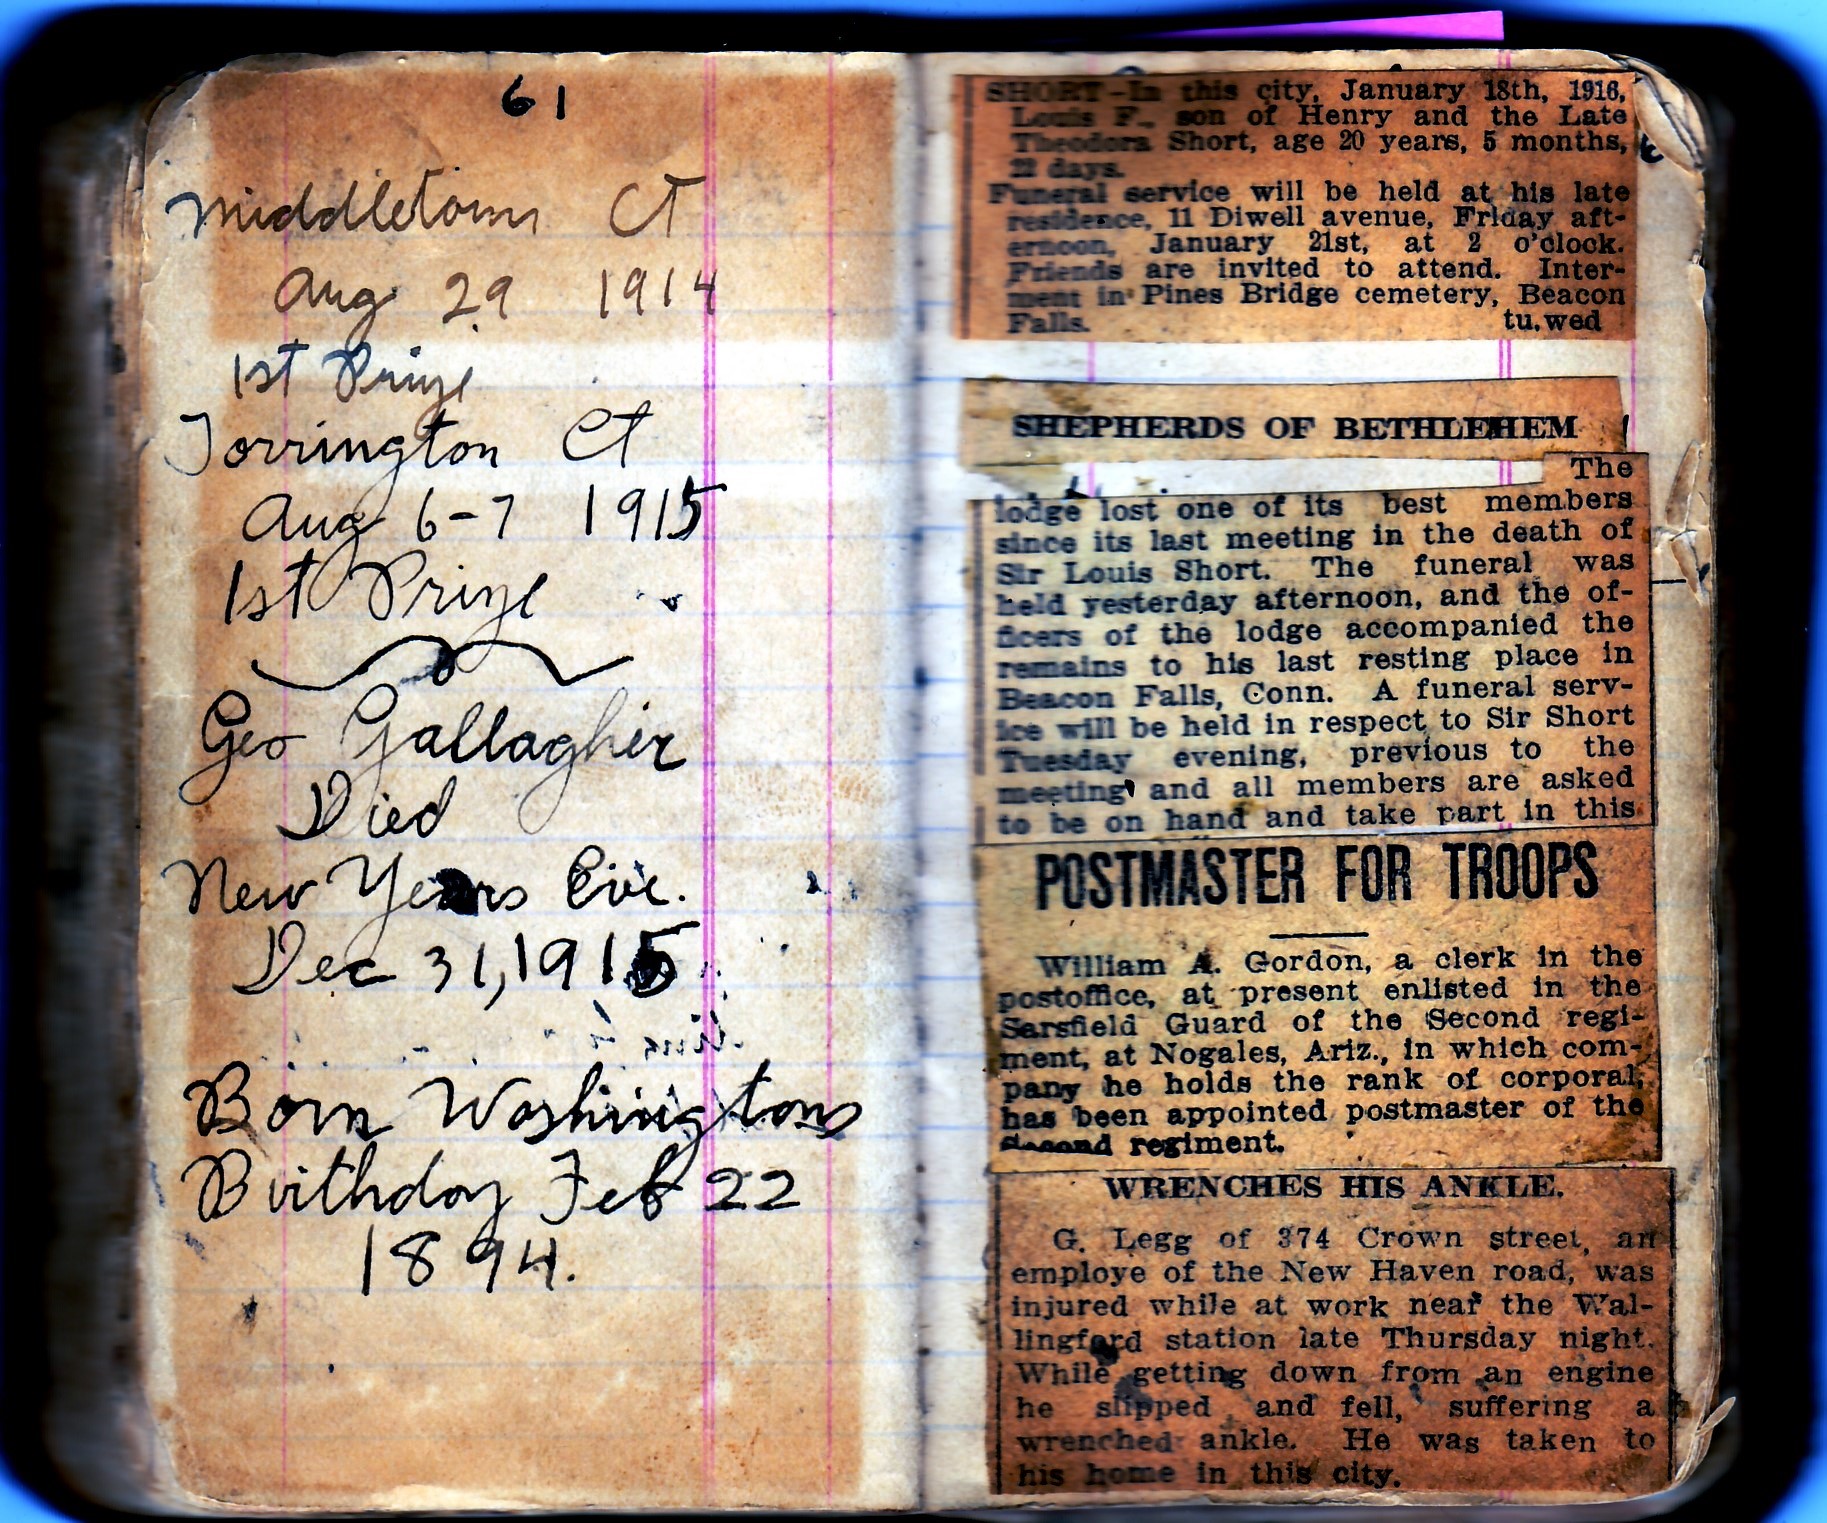 61
Middletown CT
Aug 29 1914
1st Prize
Torrington CT
Aug 6-7 1915
1st Prize
Geo Gallagher
Died
New Years Eve.
Dec 31, 1915
Born Washingtons
Birthday Feb 22
1894.
SHORT-In this city, January 18th, 1916,
Louis F., son of Henry and the Late
Theodora Short, age 20 years, 5 months,
22 days.
Funeral service will be held at his late
residence, 11 Diwell avenue, Friday aft-
ernoon, January 21st, at 2 o'clock.
Friends are invited to attend. Inter-
ment in Pines Bridge cemetery, Beacon
Falls. tu.wed
SHEPHERDS OF BETHLEHEM
The
lodge lost one of its best members
since its last meeting in the death of
Sir Louis Short. The funeral was
held yesterday afternoon, and the of-
ficers of the lodge accompanied the
remains to his last resting place in
Beacon Falls, Conn. A funeral serv-
ice will be held in respect to Sir Short
Tuesday evening, previous to the
meeting and all members are asked
to be on hand and take part in this
POSTMASTER FOR TROOPS
William A. Gordon, a clerk in the
postoffice, at present enlisted in the
Sarsfield Guard of the Second regi-
ment, at Nogales, Ariz., in which com-
pany he holds the rank of corporal,
has been appointed postmaster of the
Second regiment.
WRENCHES HIS ANKLE.
G. Legg of 374 Crown street, an
employe of the New Haven road, was
injured while at work near the Wal-
lingford station late Thursday night.
While getting down from an engine
he slipped and fell, suffering a
wrenched ankle. He was taken to
his home in this city.